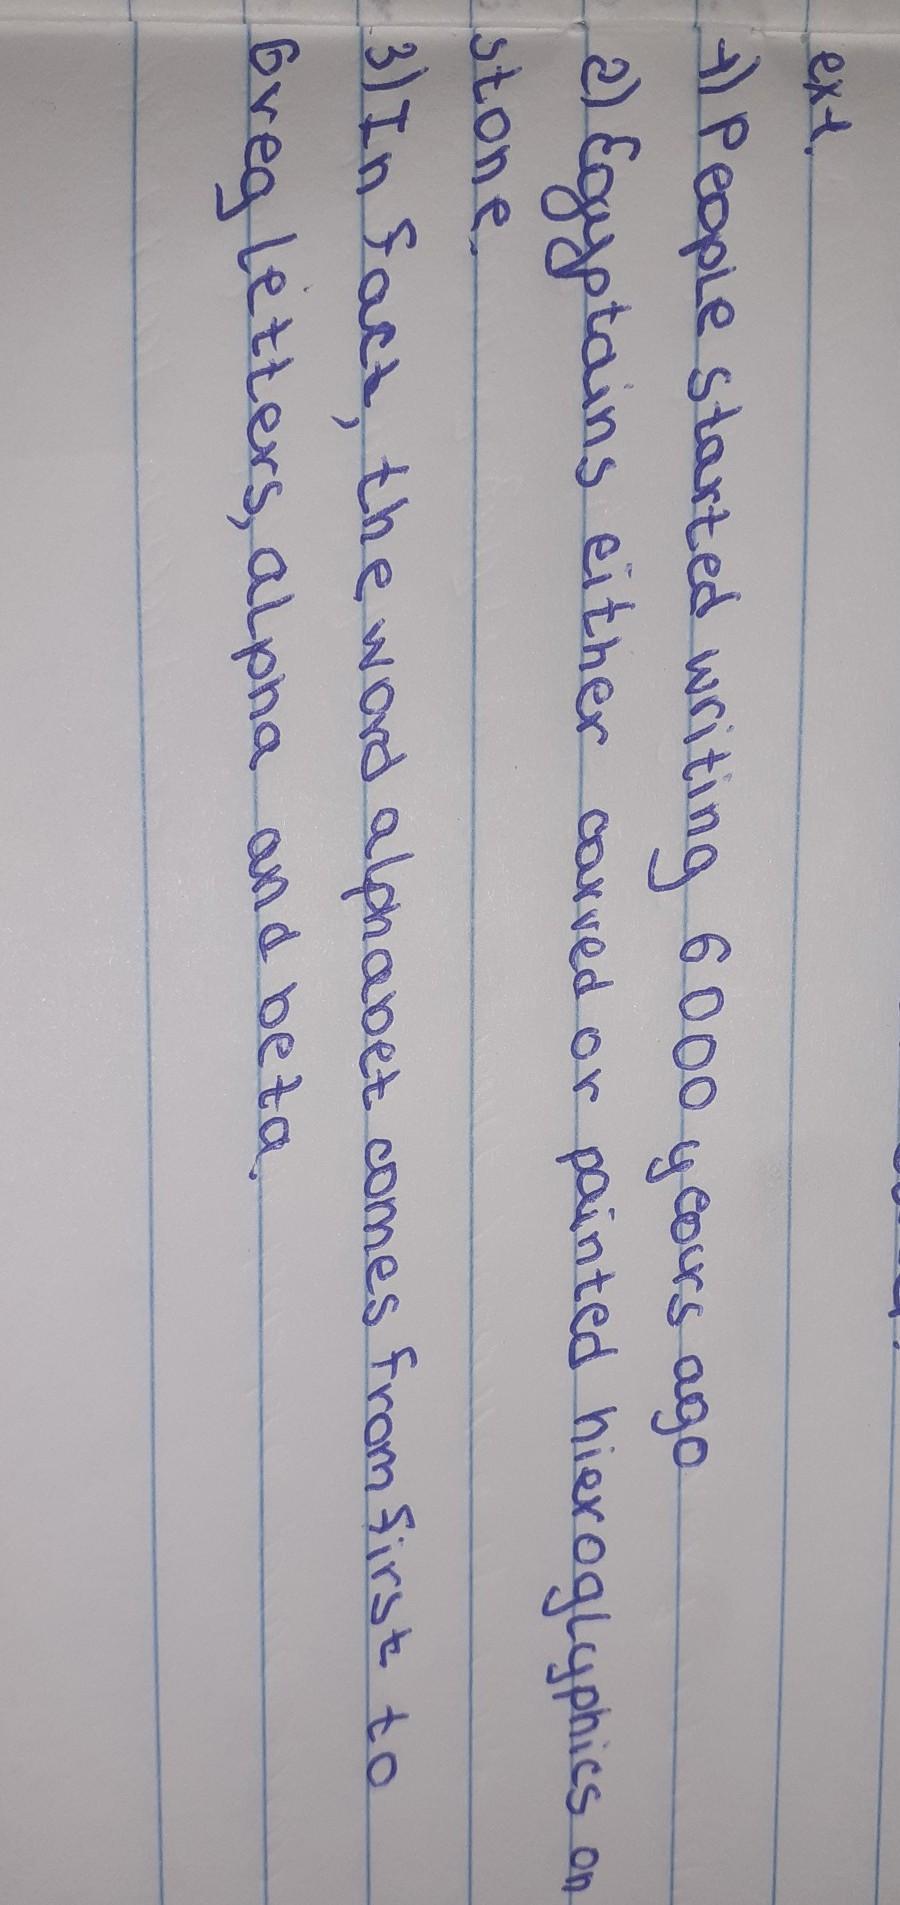 ext.
1) People started writing 6000 years ago
2) Egyptains either carved or painted hieroglyphics on
stone.
3) In fact, the word alphabet comes from first to
Greeg letters, alpha and beta.